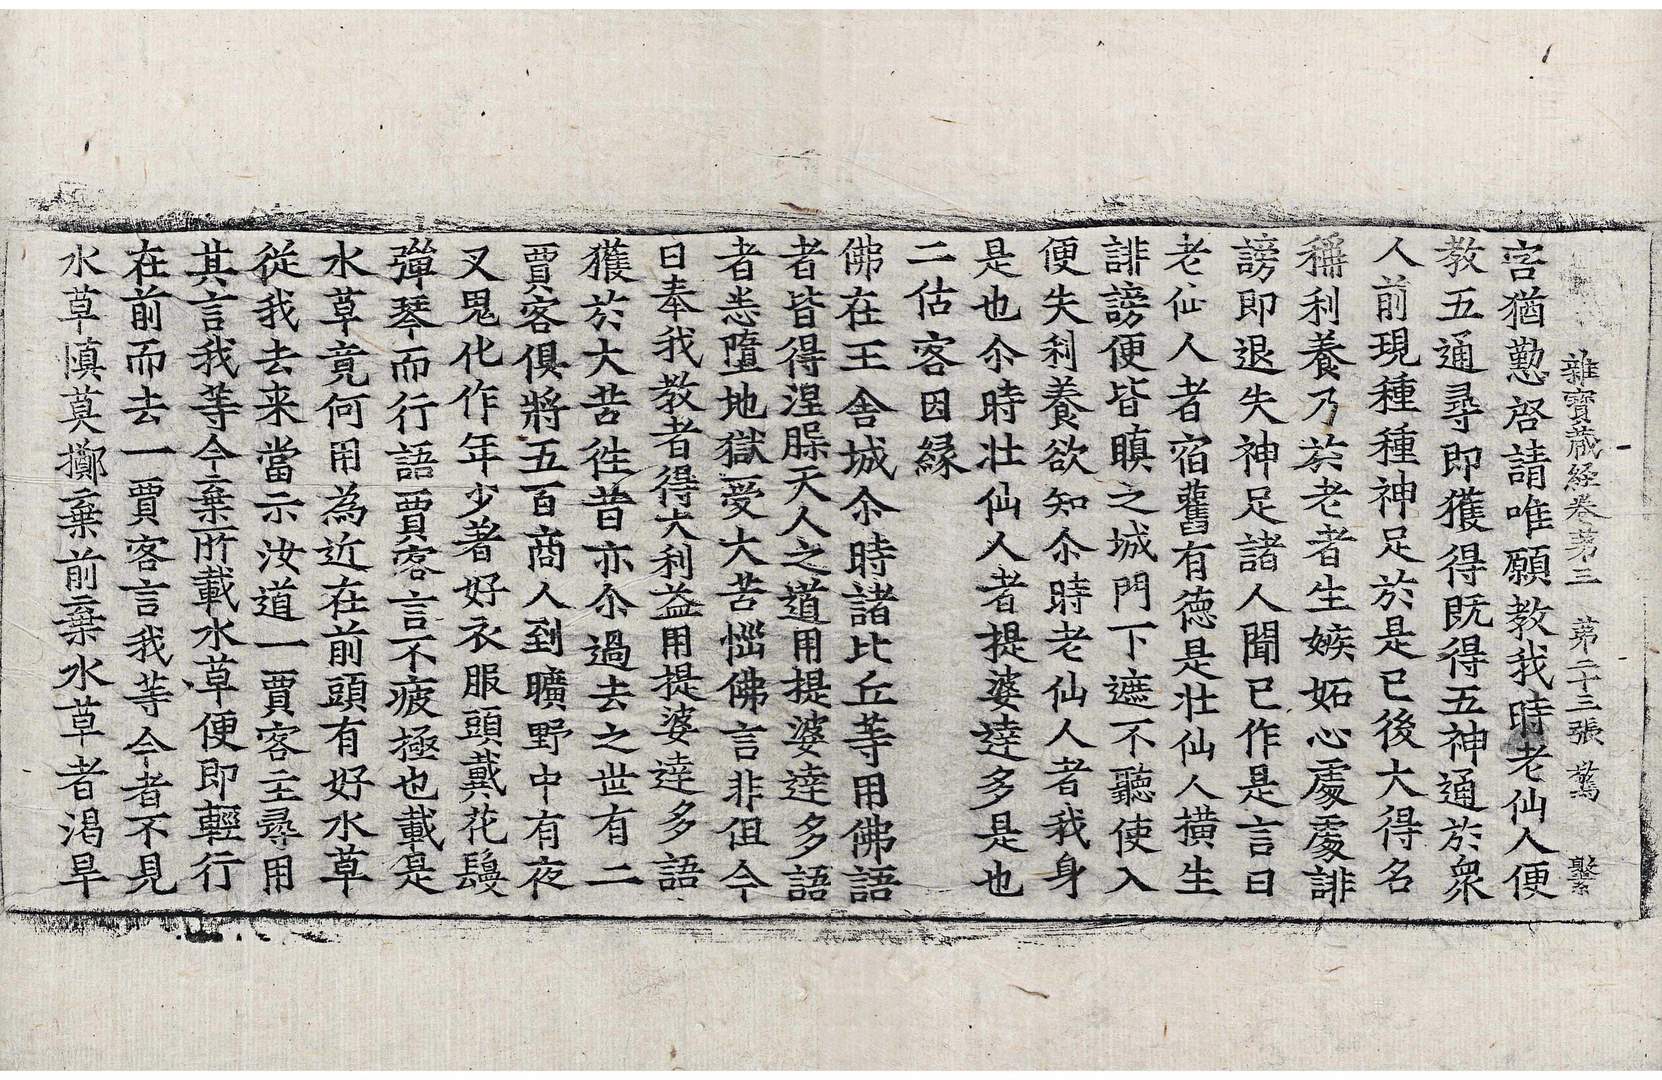 雜寶藏経卷苐三　苐二十三張　驚　繫
宮猶懃啓請唯願教我時老仙人便
教五通尋即獲得既得五神通於衆
人前現種種神足於是已後大得名
稱利養乃於老者生嫉妬心處處誹
謗即退失神足諸人聞已作是言曰
老仙人者宿舊有德是壮仙人橫生
誹謗便皆瞋之城門下遮不聽使入
便失利養欲知尒時老仙人者我身
是也尒時壮仙人者提婆達多是也
二估客因緣
佛在王舍城尒時諸比丘等用佛語
者皆得涅槃天人之道用提婆達多語
者恙墮地獄受大苦惱佛言非但今
日奉我教者得大利益用提婆達多語
獲於大苦徃昔亦尒過去之世有二
賈客俱將五百商人到曠野中有夜
叉鬼化作年少著好衣服頭戴花鬘
彈琴而行語賈客言不疲極也載是
水草竟何用為近在前頭有好水草
從我去来當示汝道一賈客主尋用
其言我等今棄所載水草便即輕行
在前而去一賈客言我等今者不見
水草慎莫擲棄前棄水草者渴旱